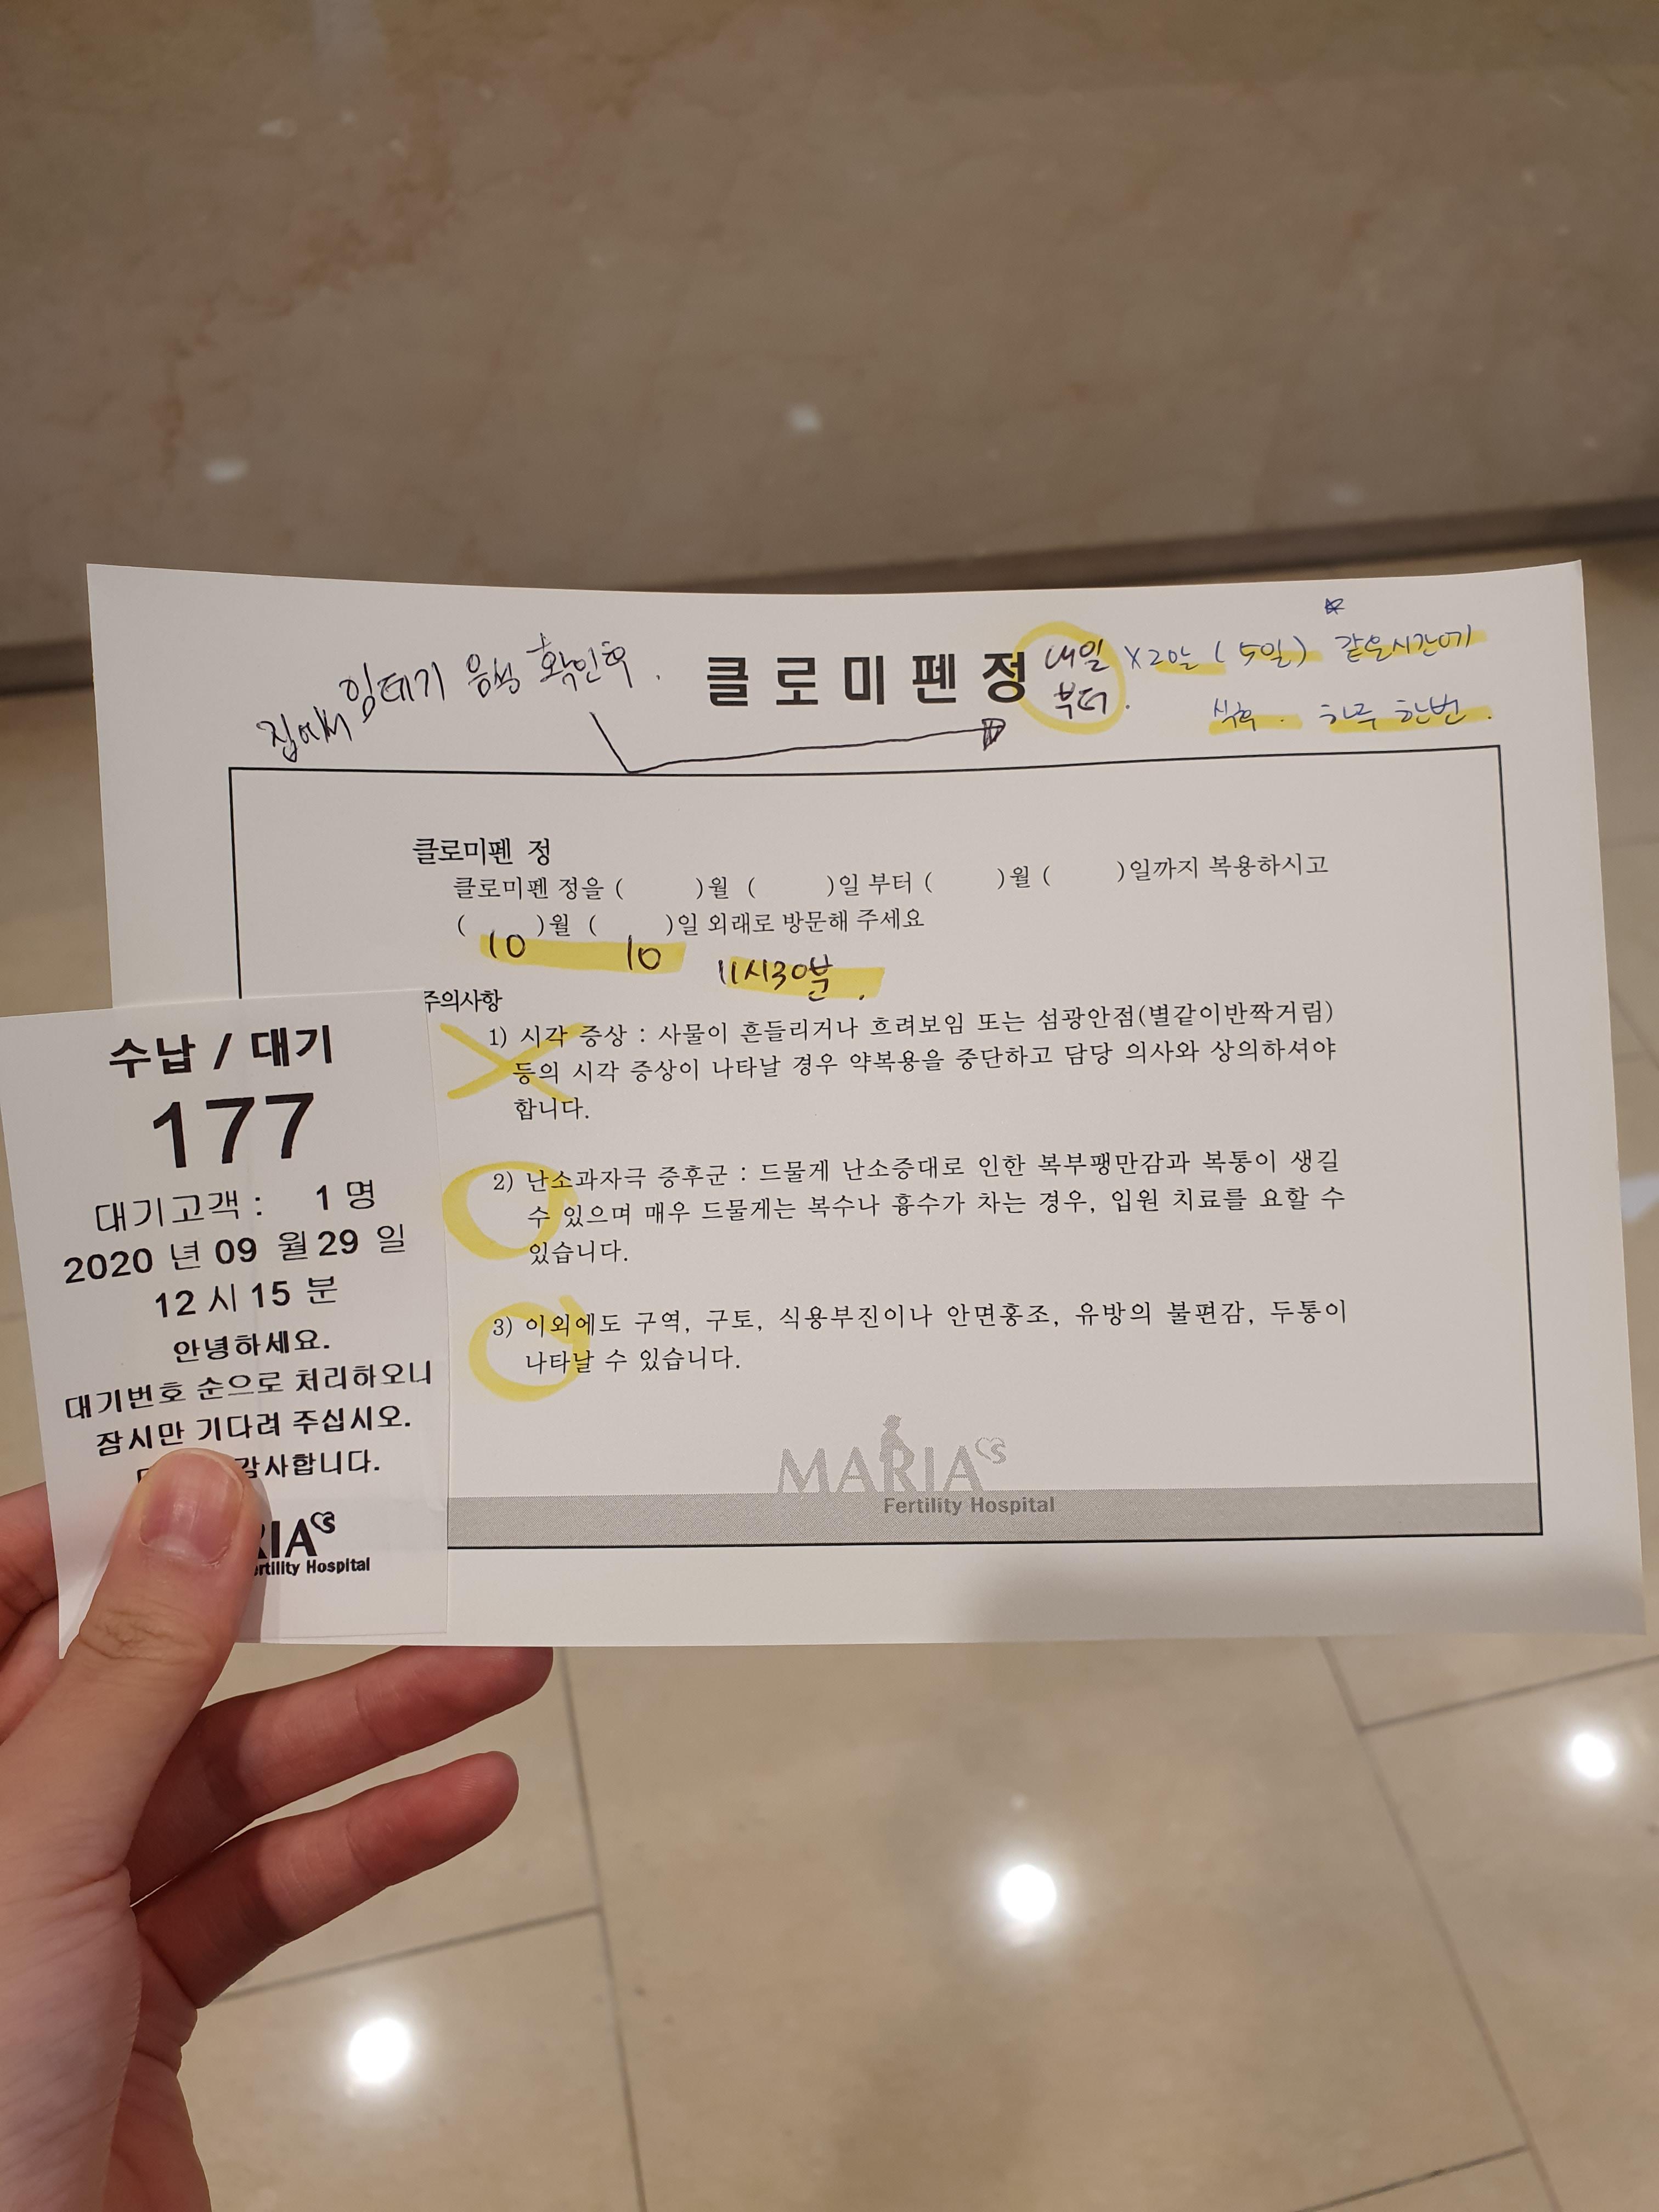 집에서 임테기 음성 확인후.
클로미펜정 내일 부터. X2알 (5일) 같은시간에
식후. 하루 한번.
클로미펜 정
클로미펜 정을 ( )월 ( )일 부터 ( )월 ( )일까지 복용하시고
( 10 )월 ( 10 )일 외래로 방문해 주세요
11시30분.
주의사항
1) 시각 증상 : 사물이 흔들리거나 흐려보임 또는 섬광안점(별같이반짝거림)
등의 시각 증상이 나타날 경우 약복용을 중단하고 담당 의사와 상의하셔야
합니다.
2) 난소과자극 증후군 : 드물게 난소증대로 인한 복부팽만감과 복통이 생길
수 있으며 매우 드물게는 복수나 흉수가 차는 경우, 입원 치료를 요할 수
있습니다.
3) 이외에도 구역, 구토, 식용부진이나 안면홍조, 유방의 불편감, 두통이
나타날 수 있습니다.
MARIA S
Fertility Hospital
수납 / 대기
177
대기고객 : 1 명
2020 년 09 월 29 일
12 시 15 분
안녕하세요.
대기번호 순으로 처리하오니
잠시만 기다려 주십시오.
감사합니다.
RIA S
ertility Hospital